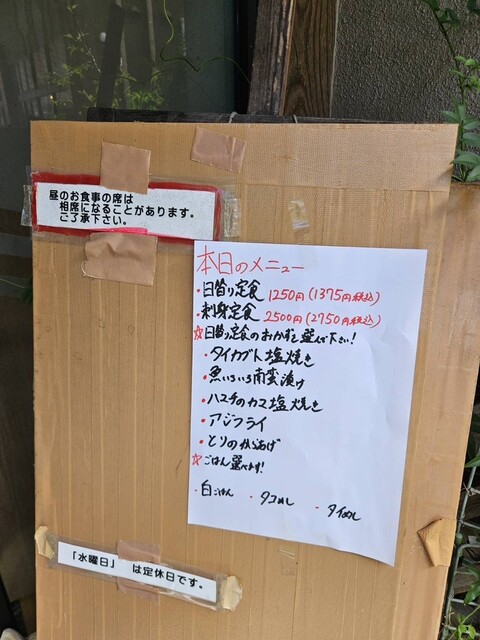 昼のお食事の席は
相席になることがあります。
ご了承下さい。
本日のメニュー
・日替り定食 1250円(1375円税込)
・刺身定食 2500円(2750円税込)
☆日替り定食のおかずを選んで下さい!
・タイカブト塩焼き
・魚いろいろ南蛮漬け
・ハマチのカマ塩焼き
・アジフライ
・とりのからあげ
☆ごはん選べます!
・白ごはん ・タコめし ・タイめし
「水曜日」 は定休日です。